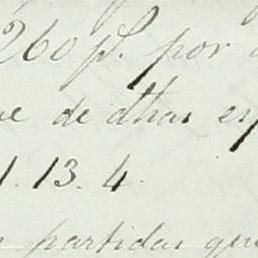 260 pS. por
de dhas es
1.13.4.
partidas que